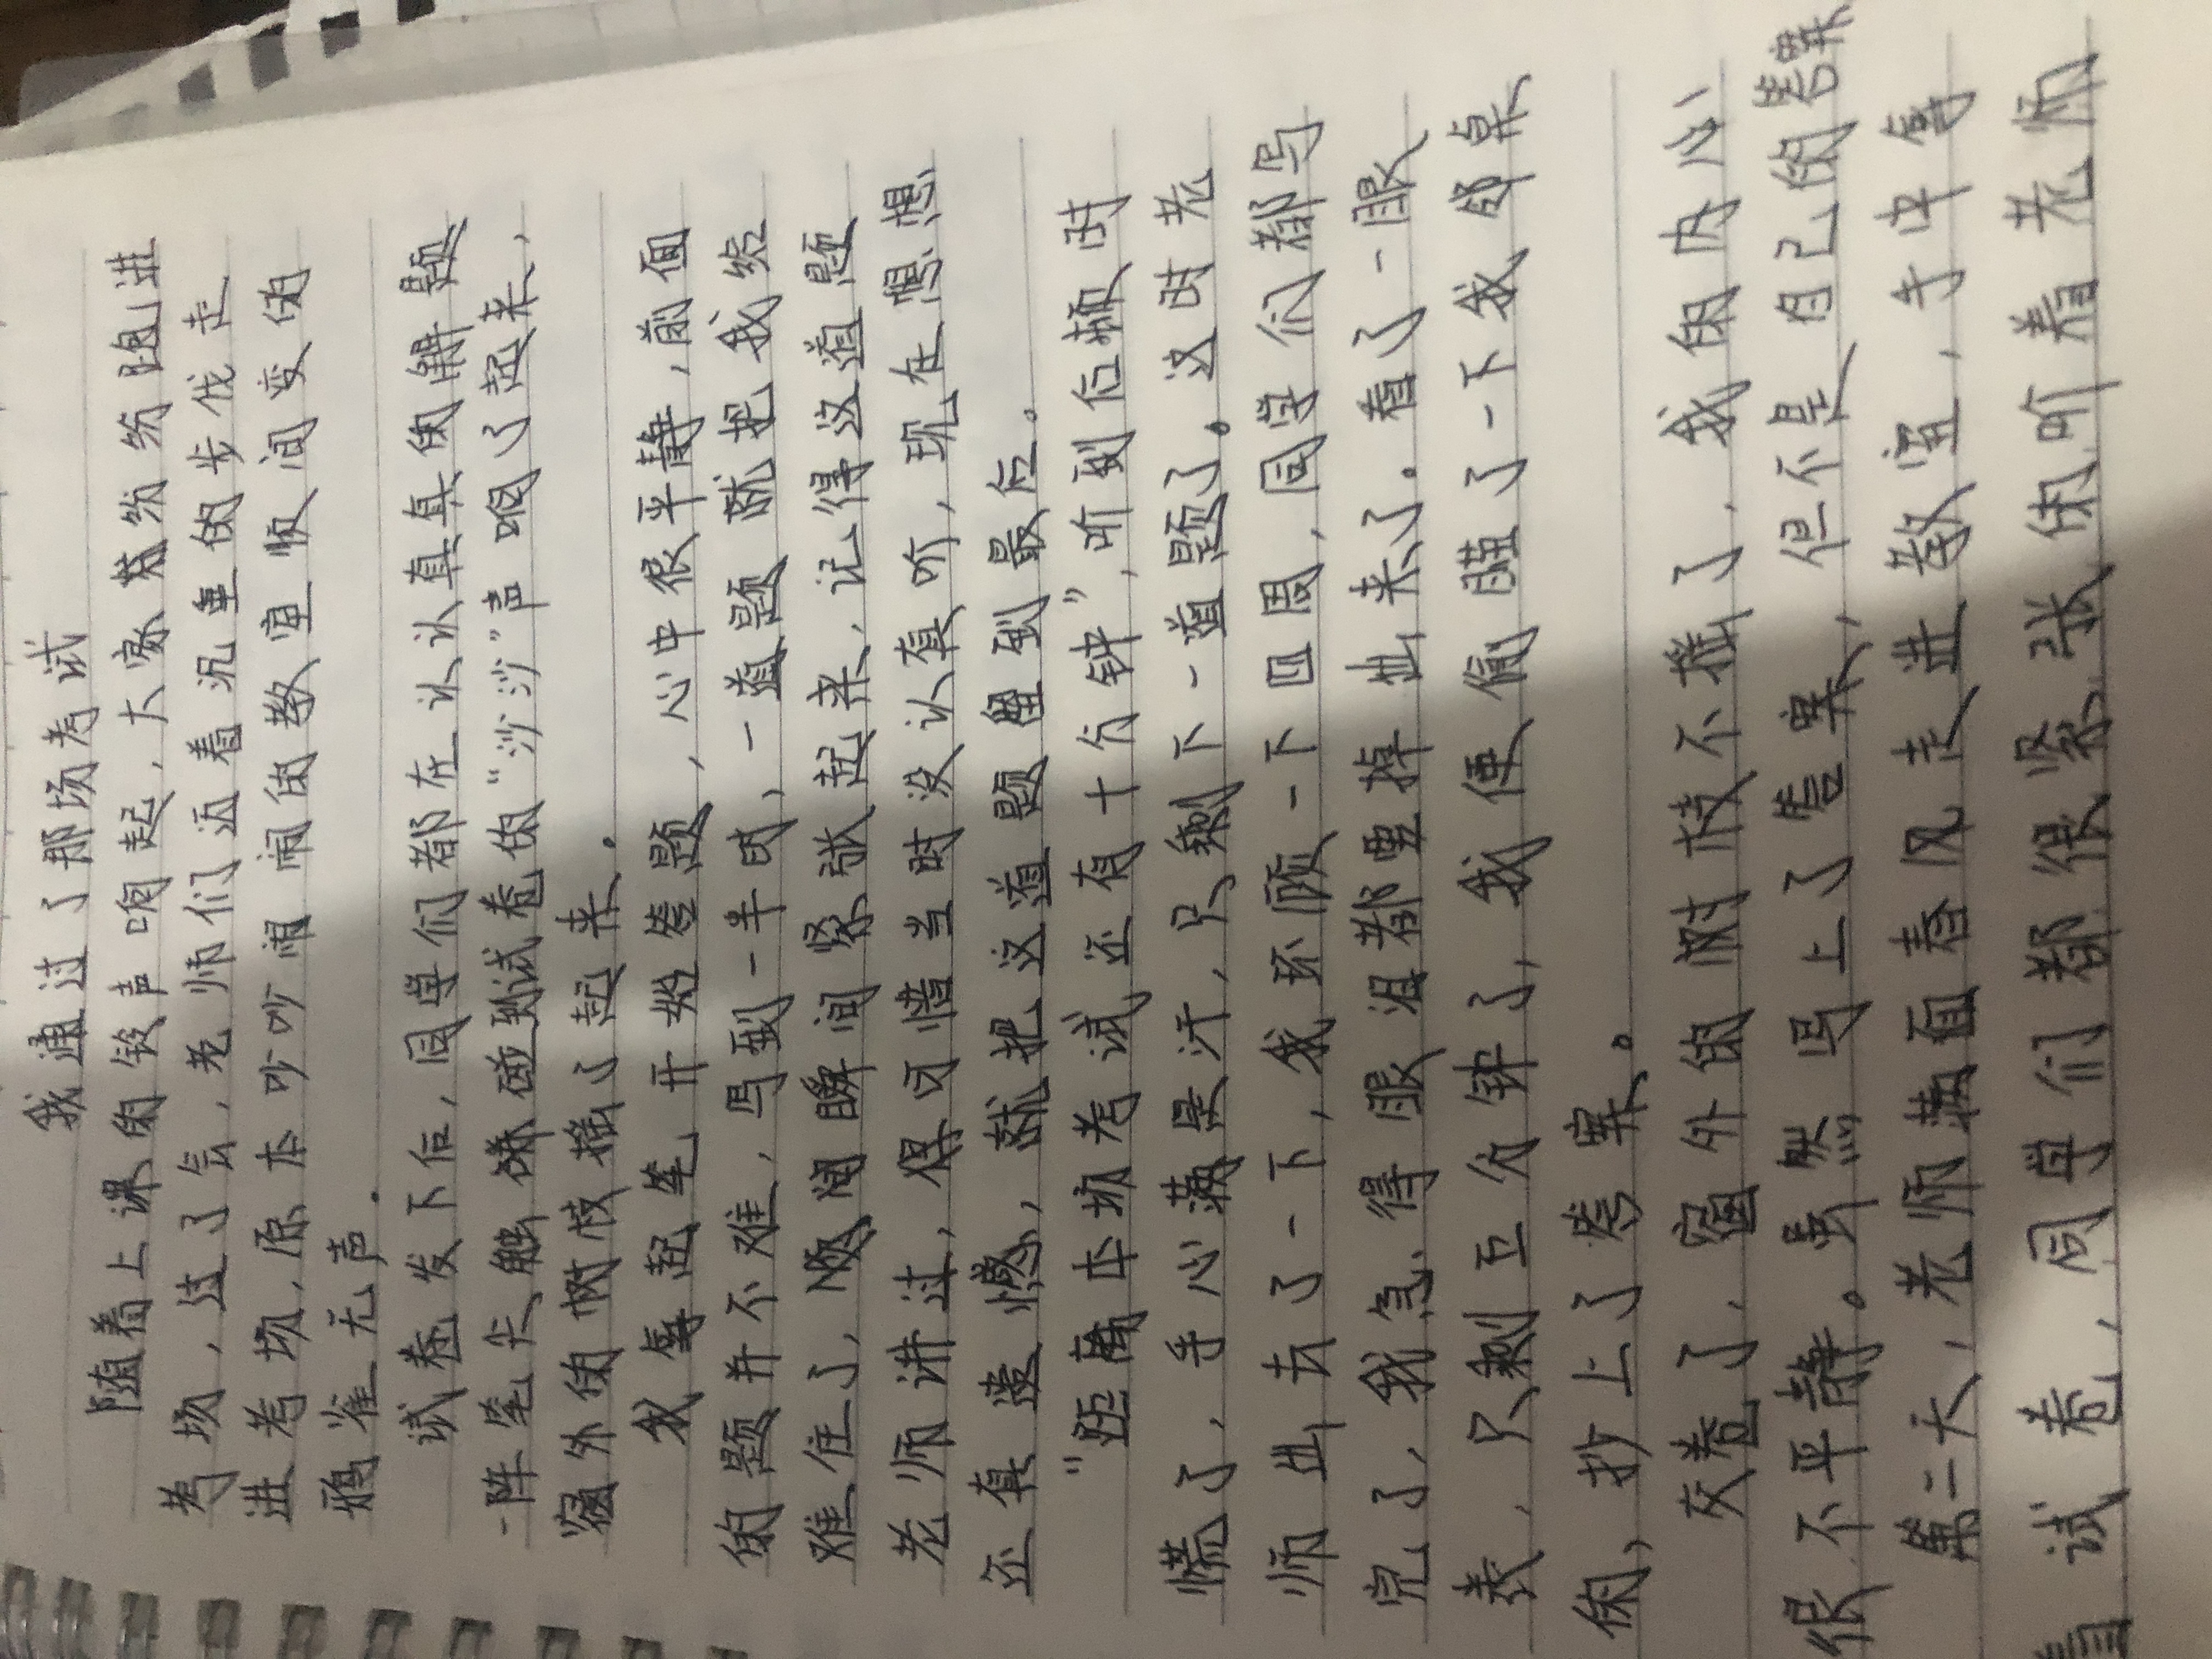 我通过了那场考试
随着上课的铃声响起，大家慕纷纷跑进
考场，过了会，老师们迈着沉重的步伐走
进考场，原本吵吵闹闹的教室顿间变的
鸦雀无声．
试卷发下后，同学们都在认认真真的解题
一阵笔尖触碰到试卷的“沙沙”声响了起来，
窗外的树枝摇了起来．
我拿起笔开始答题，心中很平静，前面
的题并不难，写到一半时，一道题就把我给
难住了，瞬间紧张起来，记得这道题
老师讲过，得可惜当时没认真听，现在想想
还真遗憾，就把这道题留到最后。
“距离本场考试还有十分钟”，听到后顿时
慌了，手心满是汗，只剩下一道题了。这时老
师出去了一下，我环顾一下四周，同学们都写
完了，我急得眼泪都要掉出来了．看了一眼
表，只剩五分钟了，我便偷瞄了一下我邻桌
的，抄上了答案。
交卷了，窗外的树枝不摇了，我的内心
很不平静。虽然写上了答案，但不是自己的答案
第二天，老师满面春风走进教室，手中拿
着试卷，同学们都很紧张的听着老师